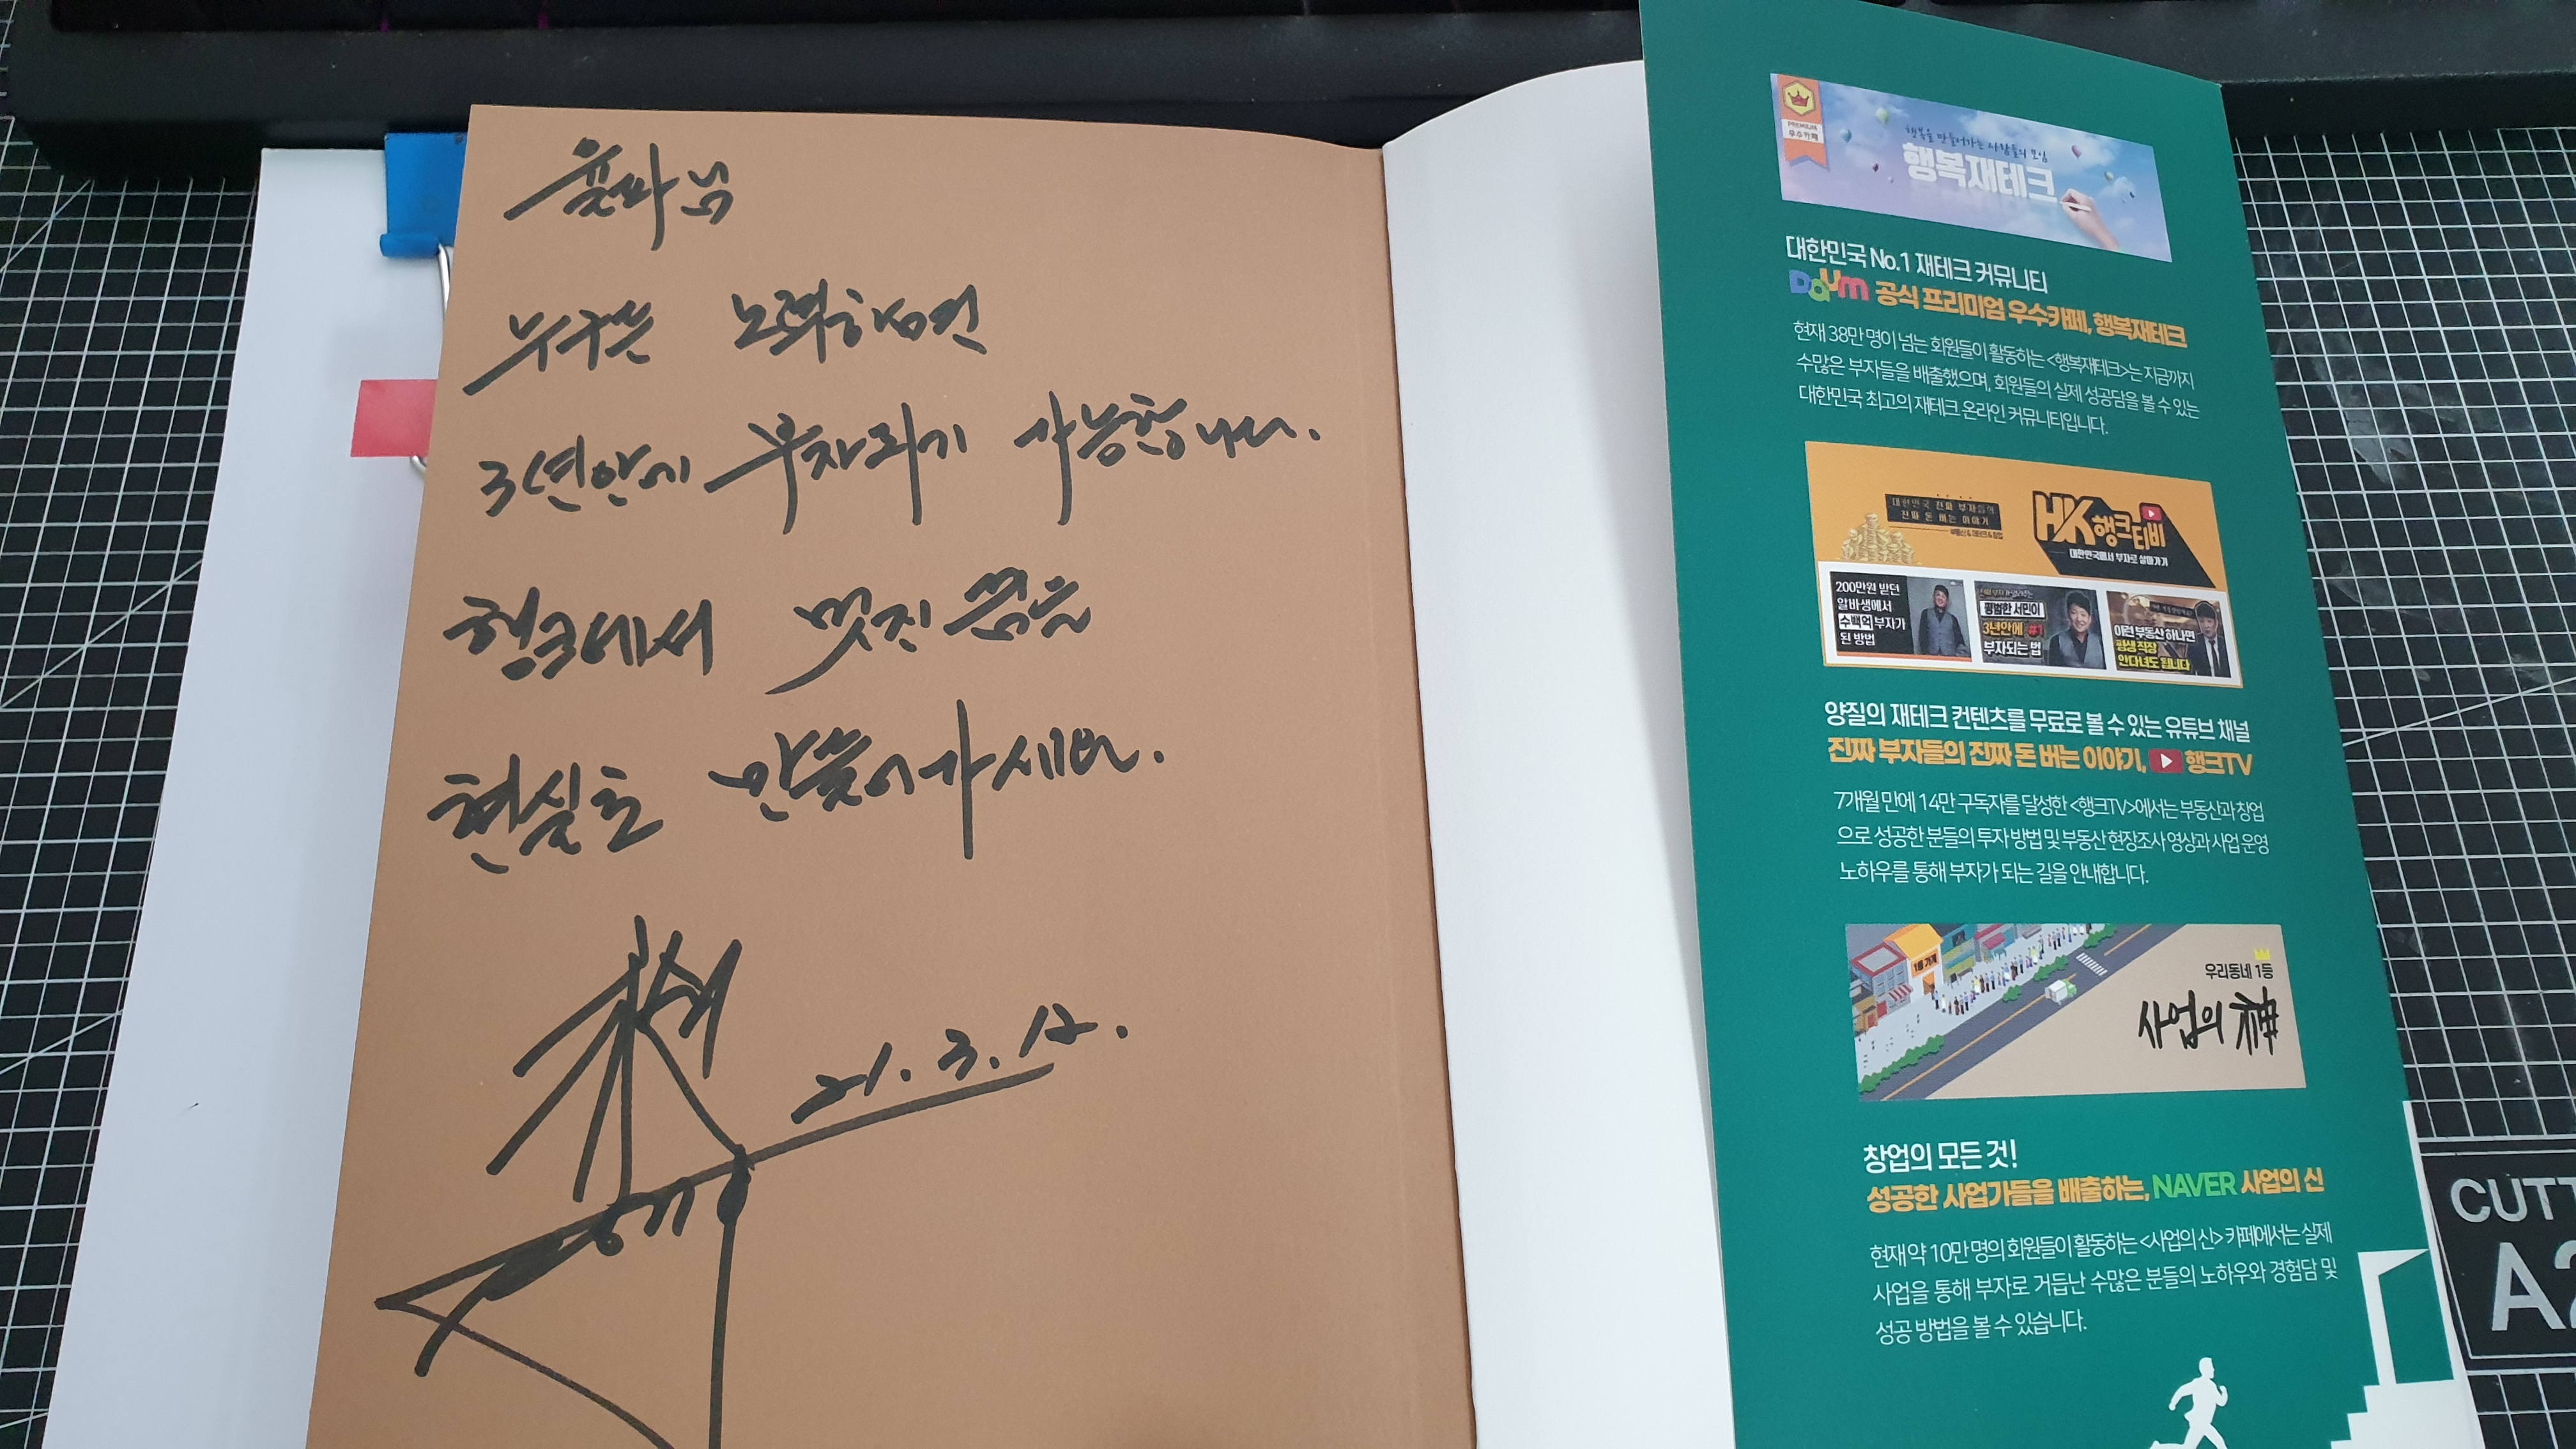 윤파님
누구든 노력하면
3년안에 부자되기 가능합니다.
행크에서 멋진 꿈을
현실로 만들어가세요.
21. 3. 12.
PREMIUM
우수카페
행복을 만들어가는 사람들의 모임
행복재테크
대한민국 No.1 재테크 커뮤니티
Daum 공식 프리미엄 우수카페, 행복재테크
현재 38만 명이 넘는 회원들이 활동하는 <행복재테크>는 지금까지
수많은 부자들을 배출했으며, 회원들의 실제 성공담을 볼 수 있는
대한민국 최고의 재테크 온라인 커뮤니티입니다.
대한민국 진짜 부자들의
진짜 돈 버는 이야기
HK 행크티비
대한민국에서 부자로 살아가기
200만원 받던
알바생에서
수백억 부자가
된 방법
평범한 서민이
3년안에 #1
부자되는 법
이런 부동산 하나면
평생 직장
안다녀도 됩니다
양질의 재테크 컨텐츠를 무료로 볼 수 있는 유튜브 채널
진짜 부자들의 진짜 돈 버는 이야기, 행크TV
7개월 만에 14만 구독자를 달성한 <행크TV>에서는 부동산과 창업
으로 성공한 분들의 투자 방법 및 부동산 현장조사 영상과 사업 운영
노하우를 통해 부자가 되는 길을 안내합니다.
1등 가게
우리동네 1등
사업의 神
창업의 모든 것!
성공한 사업가들을 배출하는, NAVER 사업의 신
현재 약 10만 명의 회원들이 활동하는 <사업의 신> 카페에서는 실제
사업을 통해 부자로 거듭난 수많은 분들의 노하우와 경험담 및
성공 방법을 볼 수 있습니다.
CUTT
A2